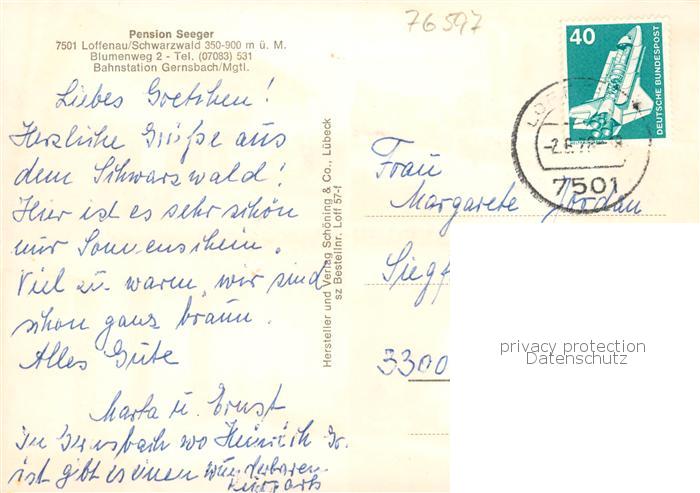 Pension Seeger
7501 Loffenau/Schwarzwald 350-900 m ü. M.
Blumenweg 2 - Tel. (07083) 531
Bahnstation Gernsbach/Mgtl.
Liebes Gretchen!
Herzliche Grüße aus
dem Schwarzwald!
Hier ist es sehr schön
nur Sonnenschein.
Viel zu warm, wir sind
schon ganz braun.
Alles Gute
Marta u. Ernst
In Gernsbach wo Heinrich
ist gibt es einen wunderbaren
Kurpark
Hersteller und Verlag Schöning & Co., Lübeck
sz Bestellnr. Loff 57-f
76597
40
DEUTSCHE BUNDESPOST
7501
Frau
Margarete Jordan
Siegf
3300
privacy protection
Datenschutz